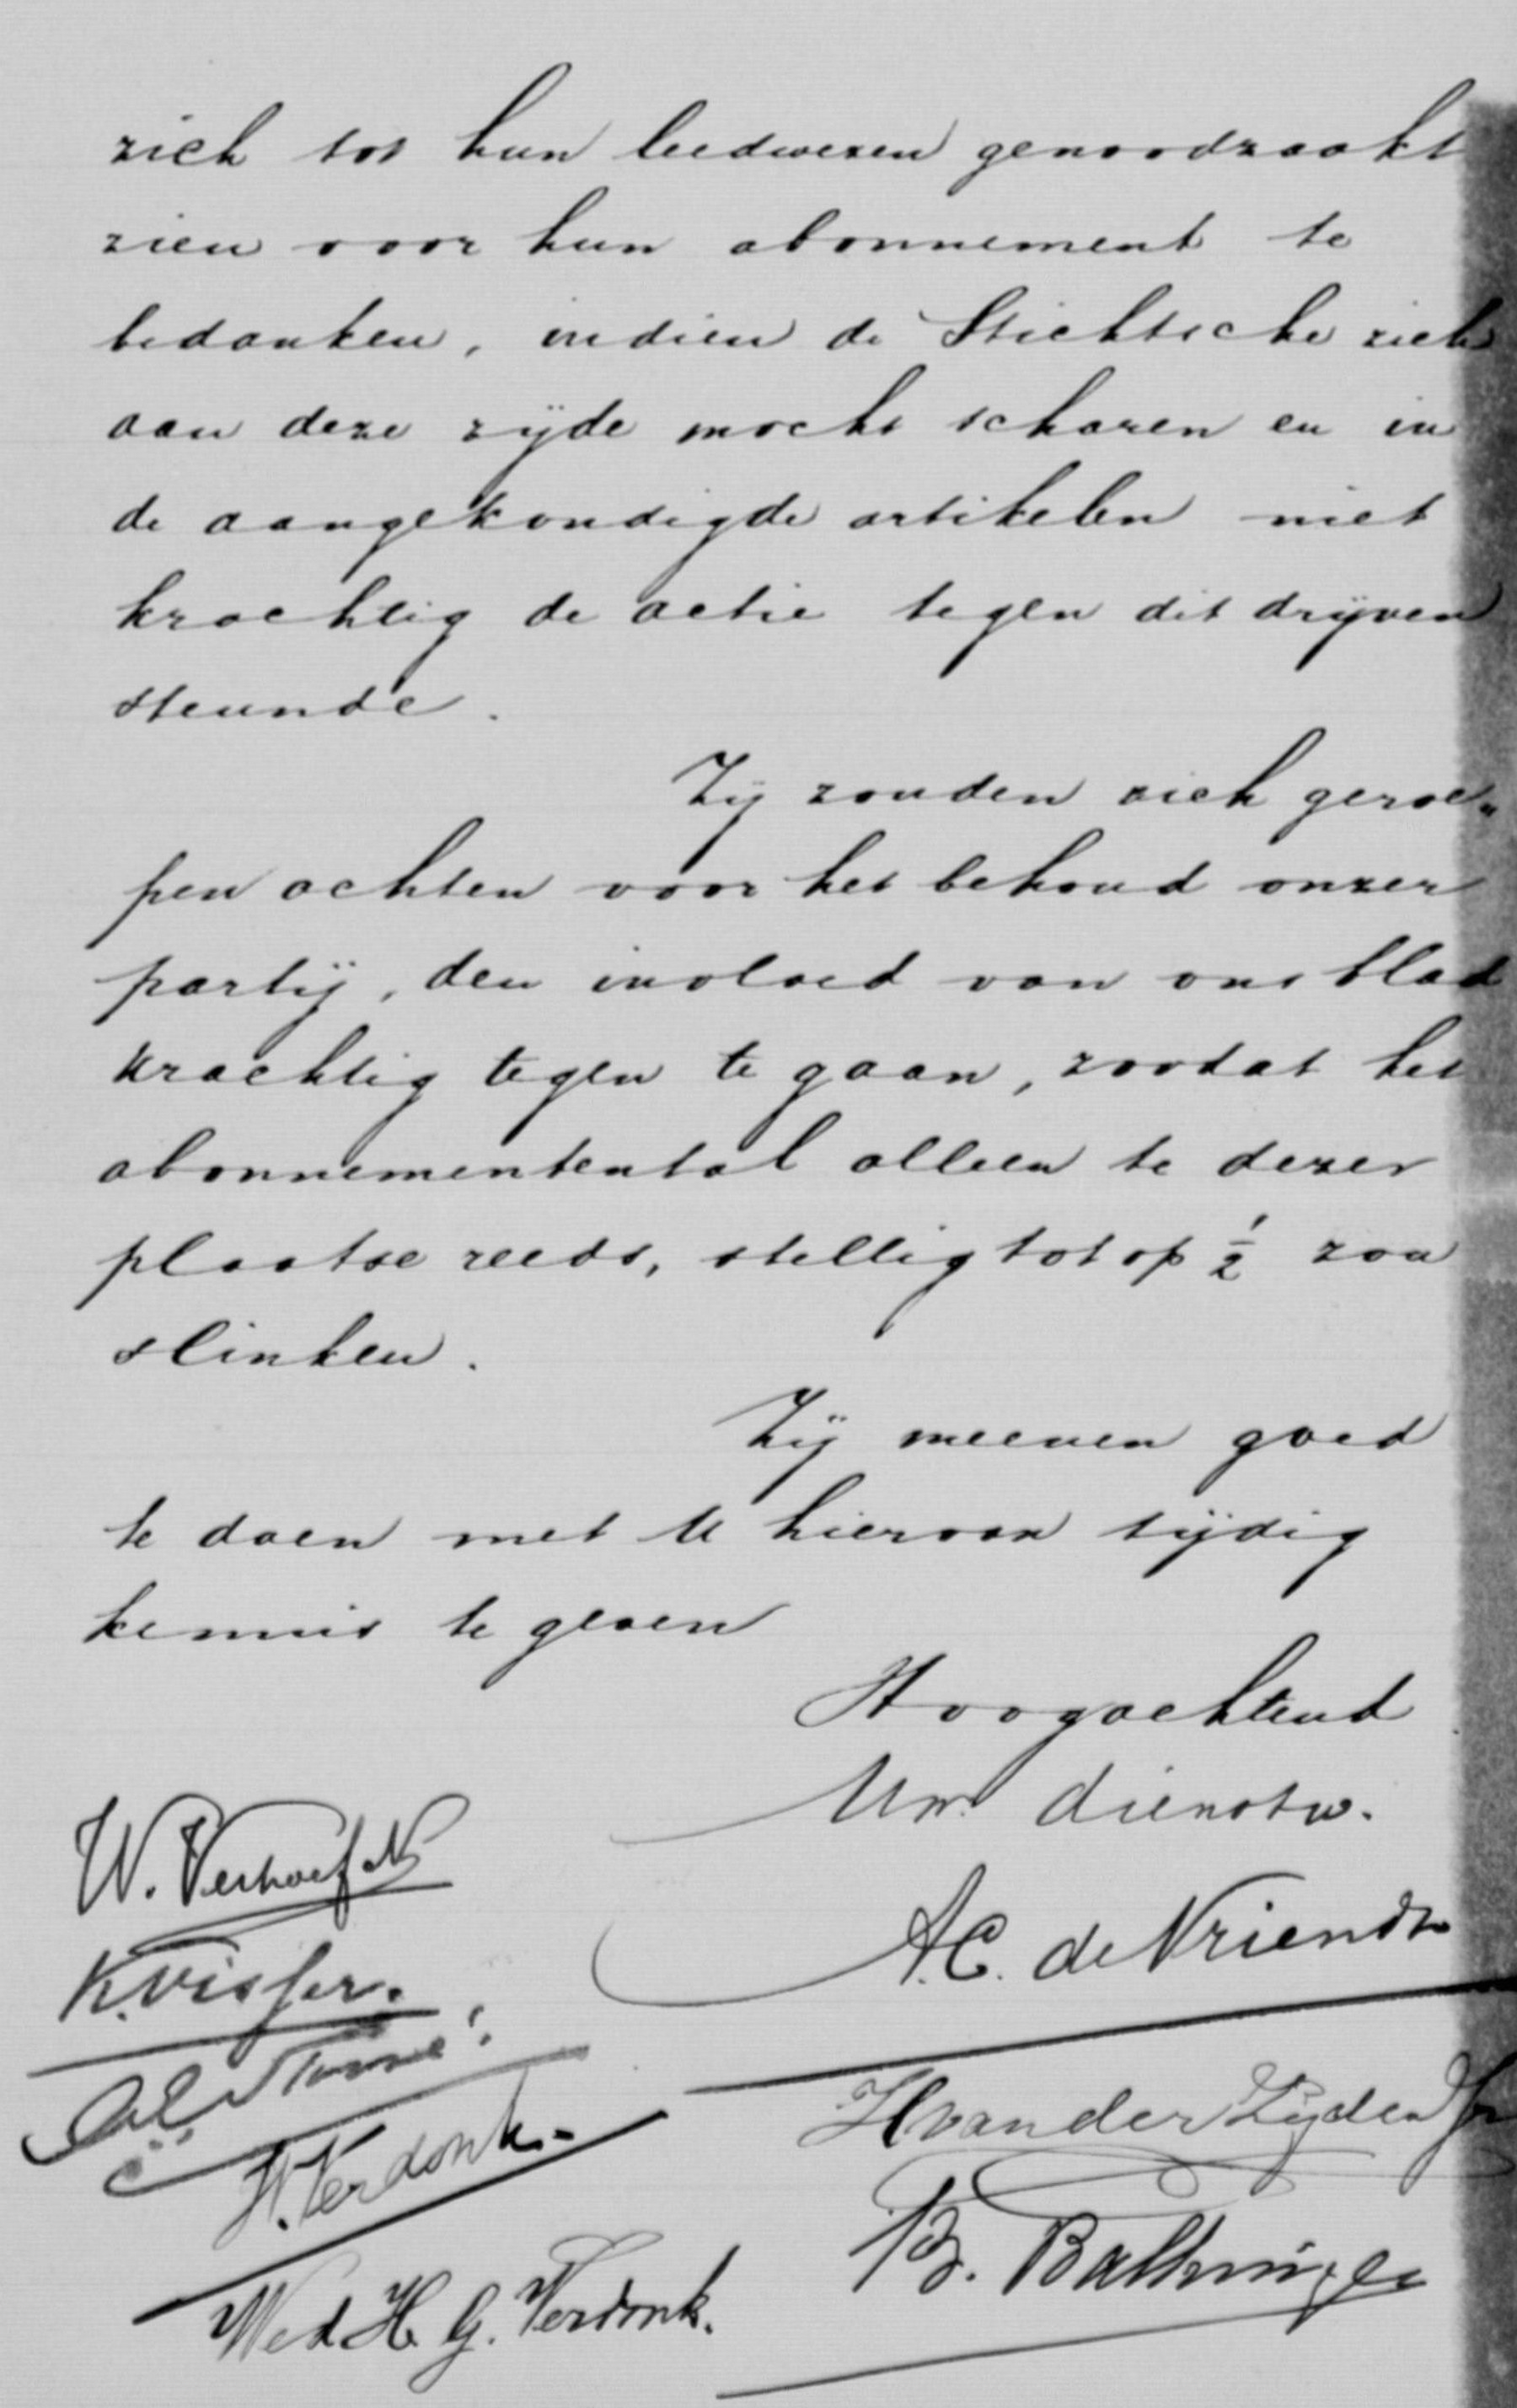 zich tot hun leedwezen genoodzaakt
zien voor hun abonnement te
bedanken, indien de Stichtsche zich
aan deze zijde mocht scharen en in
de aangekondigde artikelen niet
krachtig de actie tegen dit drijven
steunde.
Zij zouden zich geroe„
pen achten voor het behoud onzer
partij, den invloed van ons blad
krachtig tegen te gaan, zoodat het
abonnementental alleen te dezer
plaatse reeds, stellig tot op ½ zou
slinken.
Zij meenen goed
te doen met U hiervan tijdig
kennis te geven
Hoogachtend
Uw dienstw.
A.C. de Vriendt
H van der Zijden Jr
B.
W. Verhoef
K. Visser.
H. Verdonk.
Wed H. G. Verdonk.